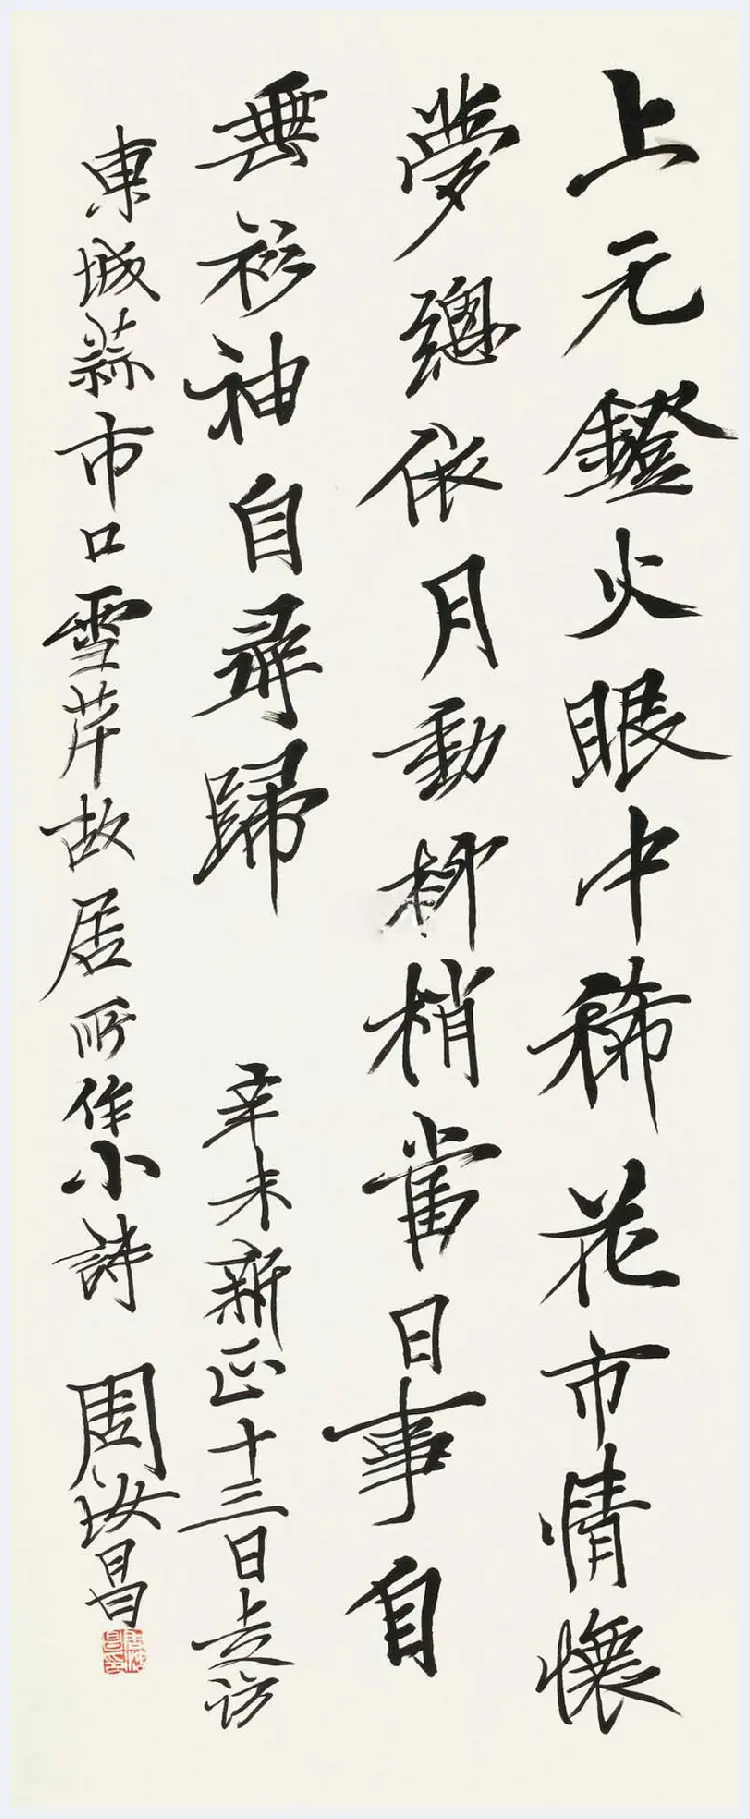 上元鐙火眼中稀花市情懷
夢總依月動柳梢當日事自
無衫袖自尋歸 辛未新正十三日走訪
東城蒜市口雪芹故居所作小詩 周汝昌